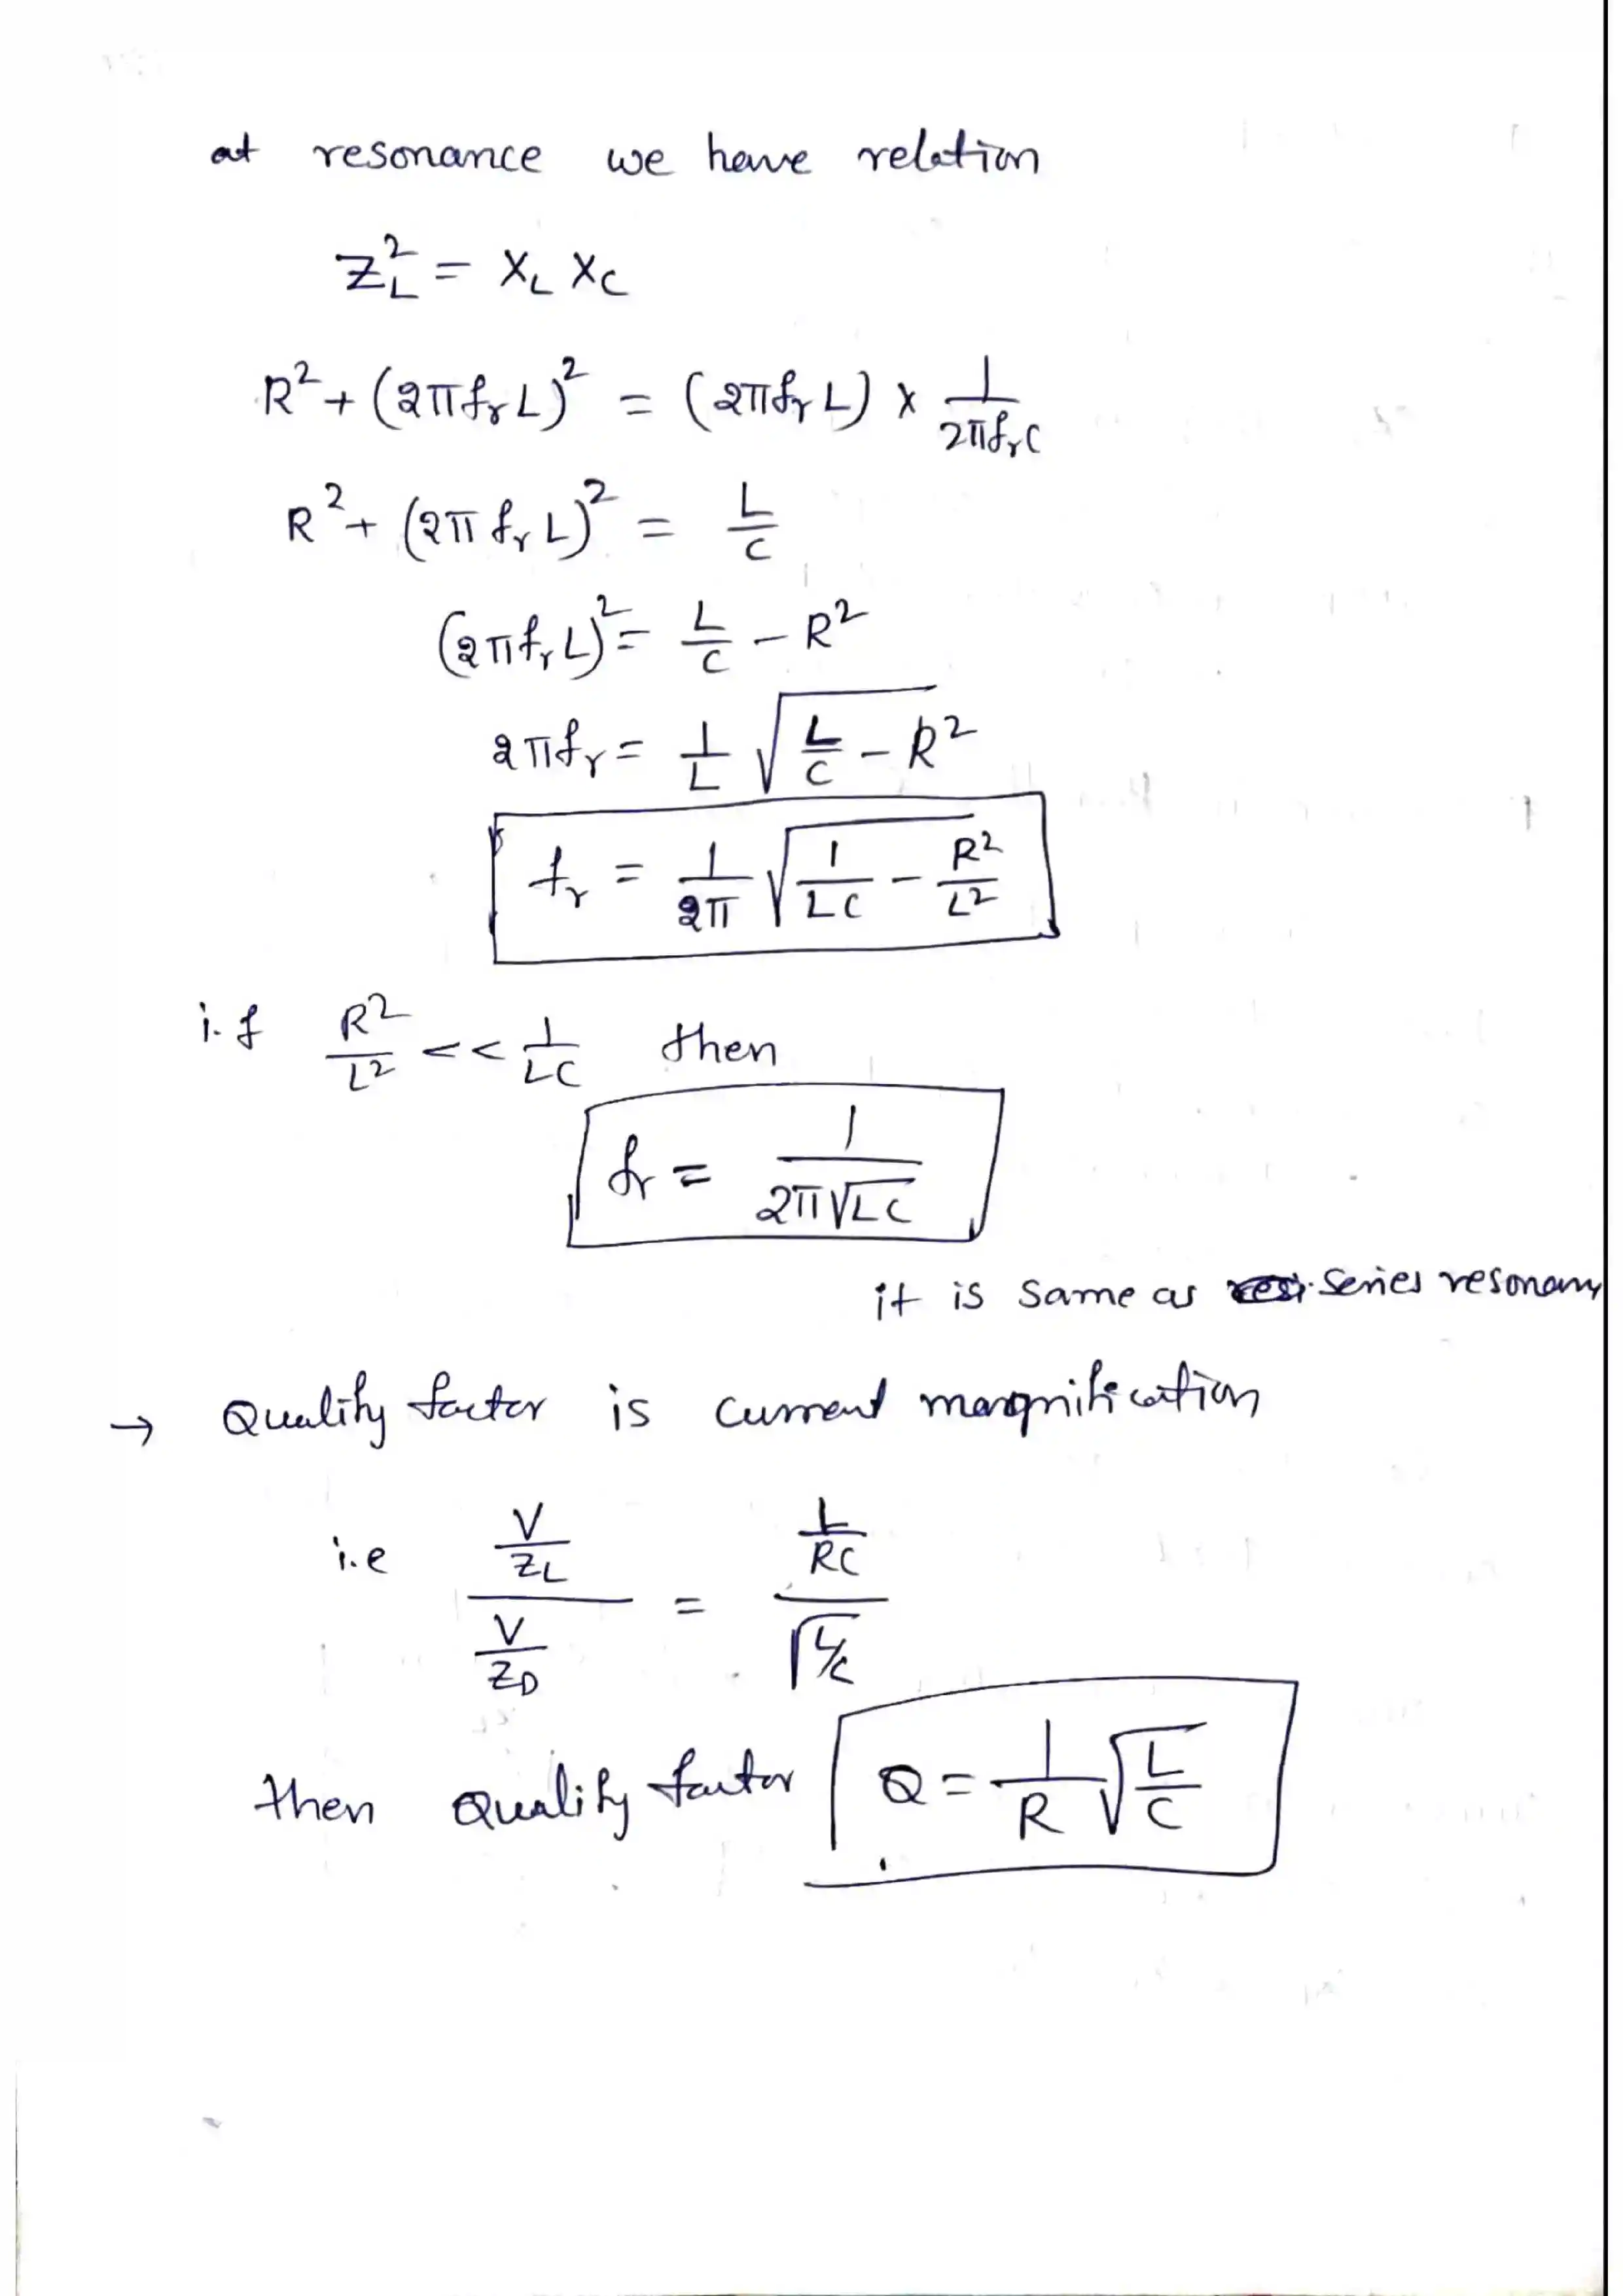 at resonance we have relation
Z_L^2 = X_L X_C
R^2 + (2πf_r L)^2 = (2πf_r L) × 1/(2πf_r C)
R^2 + (2πf_r L)^2 = L/C
(2πf_r L)^2 = L/C - R^2
2πf_r = 1/L √(L/C - R^2)
f_r = 1/(2π) √(1/(LC) - R^2/L^2)
i.f R^2/L^2 << 1/(LC) then
f_r = 1/(2π√(LC))
it is same as series resonan
→ Quality factor is current magnification
i.e (V/Z_L)/(V/Z_D) = (L/(RC))/√(L/C)
then Quality factor Q = 1/R √(L/C)